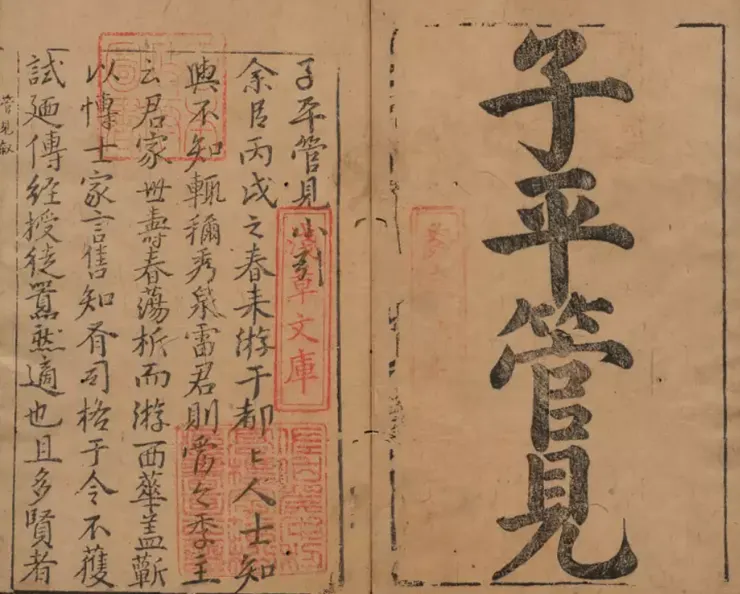 子平管見
子平管見小引
余㠯丙戌之春来游于都〻人士知
與不知輙稱秀泉雷君則當今季主
云君家世壽春蕩析而游西華盖蘄
以愽士家言售知有司格于令不獲
試廼傳經授徒嚣然適也且多賢者
管見叙
淺草文庫